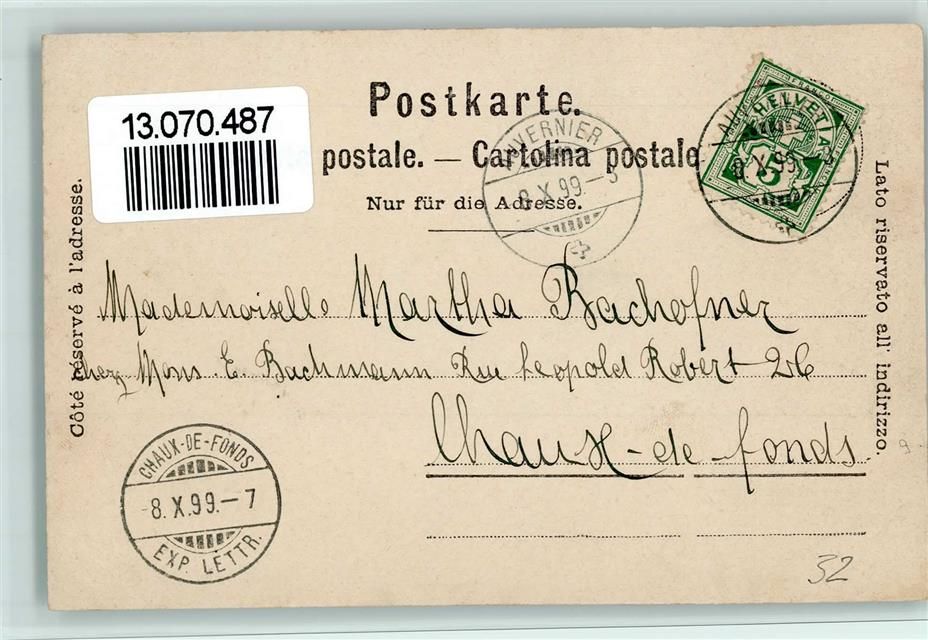 13.070.487
Postkarte.
postale. — Cartolina postale
Nur für die Adresse.
Côté réservé à l'adresse.
Lato riservato all' indirizzo.
AUVERNIER
8.X.99.-3
HELVETIA
5
8.X.99.
Mademoiselle Martha Bachofner
chez Mons. E. Bachmann Rue Leopold Robert 26
Chaux-de-fonds
CHAUX-DE-FONDS
-8.X.99.-7
EXP. LETTR.
32